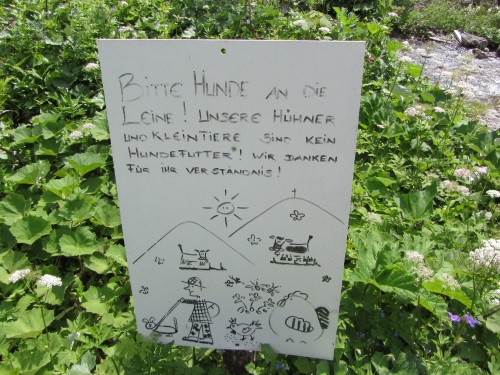 BITTE HUNDE AN DIE
LEINE! UNSERE HÜHNER
UND KLEINTIERE SIND KEIN
HUNDEFUTTER! WIR DANKEN
FÜR IHR VERSTÄNDNIS!